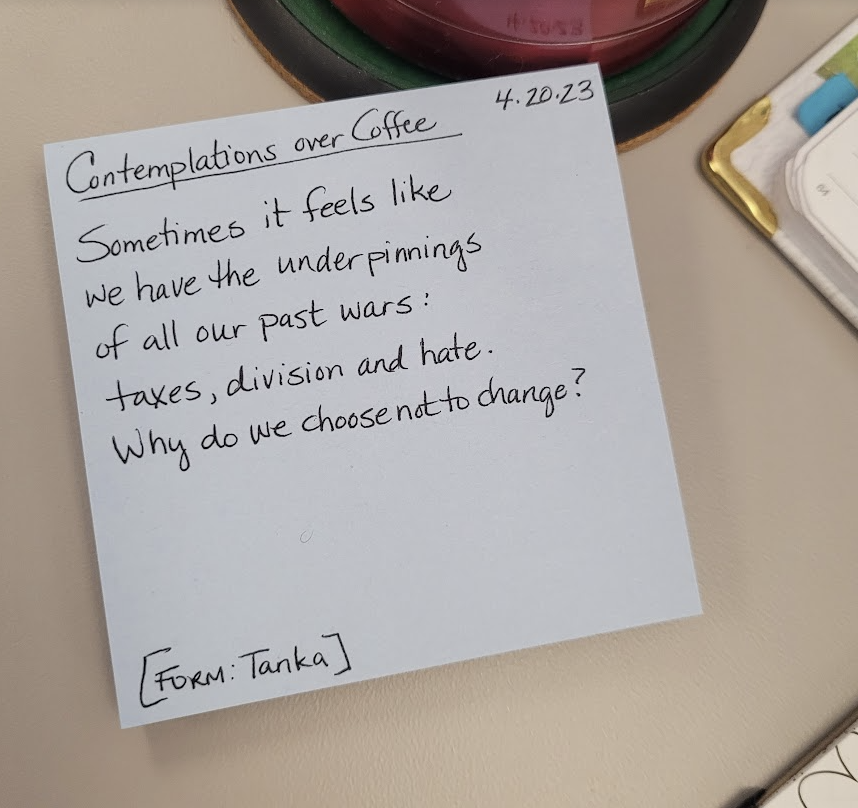 Contemplations over Coffee 4.20.23
Sometimes it feels like
we have the underpinnings
of all our past wars:
taxes, division and hate.
Why do we choose not to change?
[FORM: Tanka]